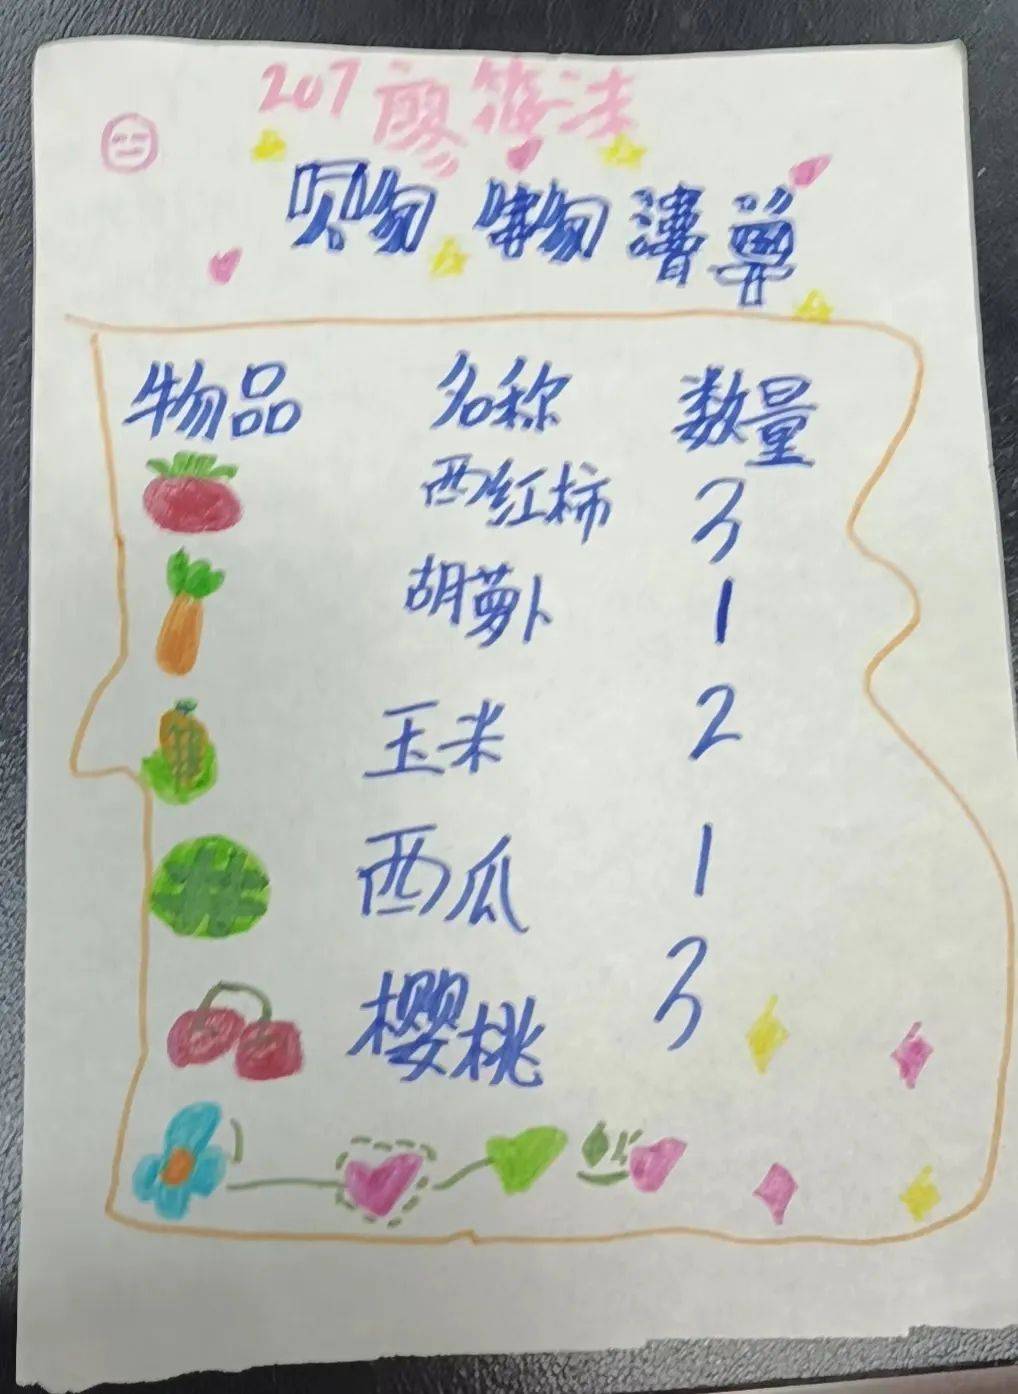 207 廖
购物 购物 清单
物品 名称 数量
西红柿 3
胡萝卜 1
玉米 2
西瓜 1
樱桃 3